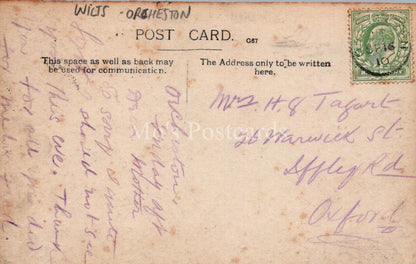 WILTS - ORCHESTON
POST CARD.
G67
This space as well as back may
be used for communication.
The Address only to be written
here.
Mrs H G Tagart
26 Warwick St
Iffley Rd
Oxford
Orcheston
Sunday aft
Dear Mother
So sorry I
should not see
you this eve. Thank
you for all you did
for me
Mo's Postcards